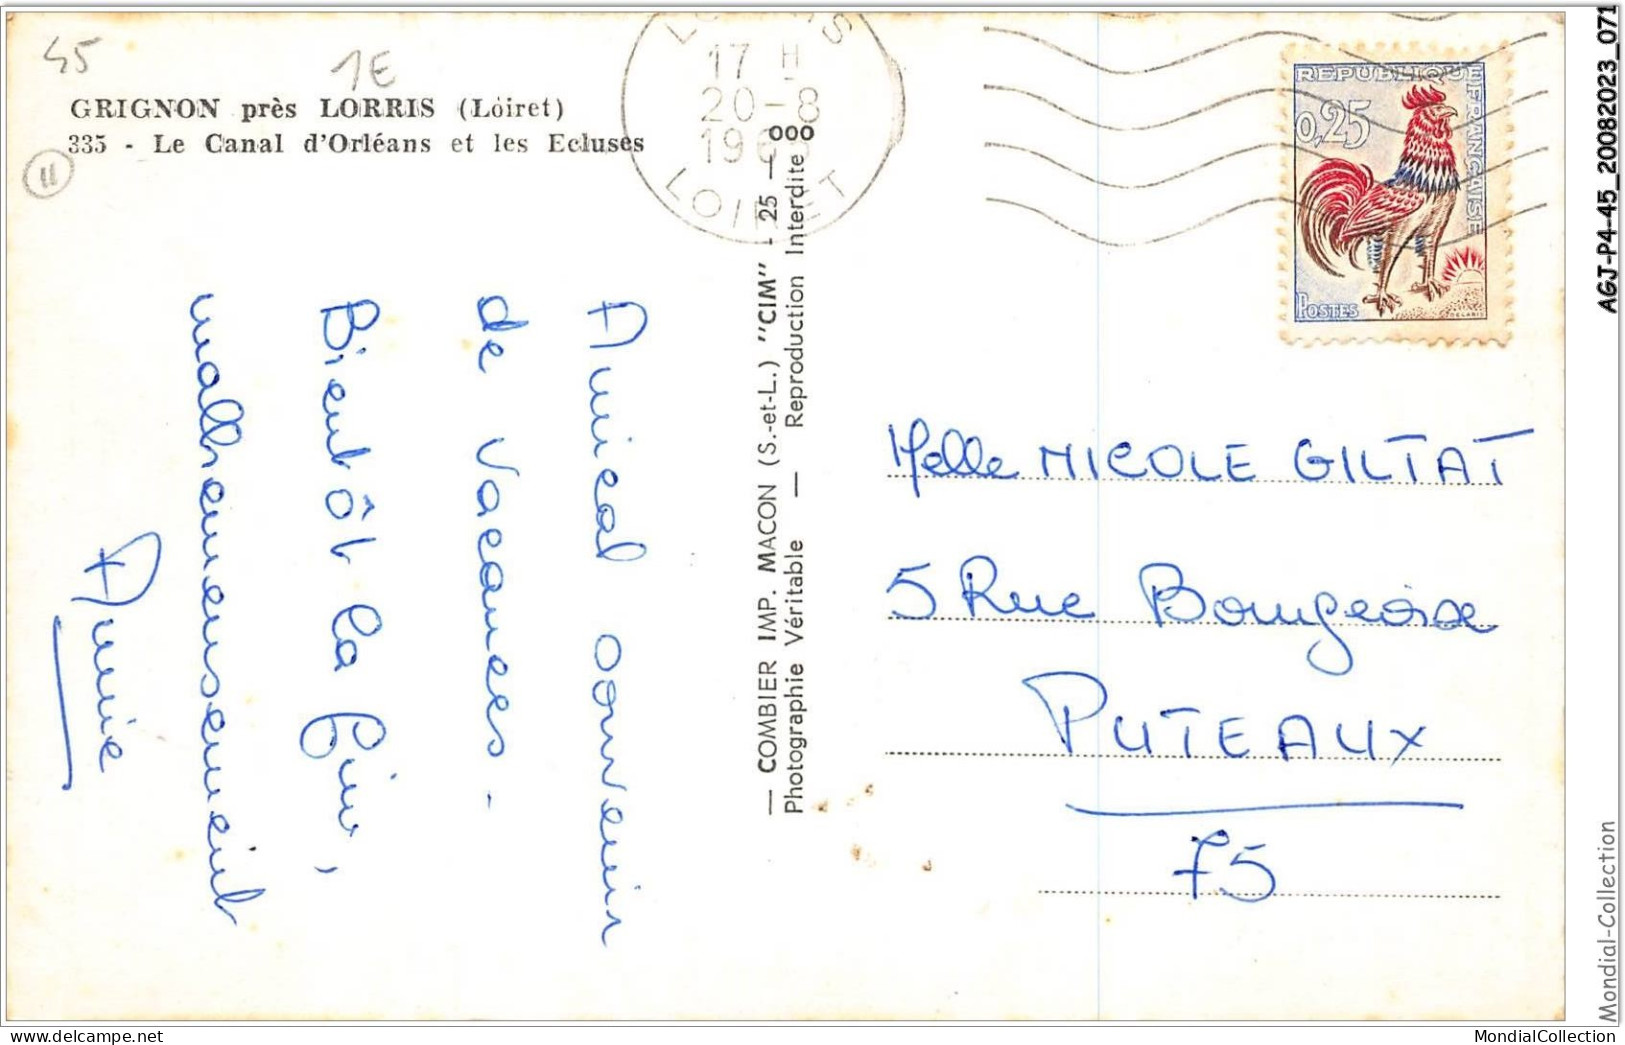 45
1E
GRIGNON près LORRIS (Loiret)
335 - Le Canal d'Orléans et les Ecluses
11
LORRIS
17 H
20-8
LOIRET
REPUBLIQUE FRANÇAISE
0,25
POSTES
Amical souvenir
de Vacances.
Bientôt la fin,
malheureusement
Annie
— COMBIER IMP. MACON (S.-et-L.) "CIM" - 25 — 000
Photographie Véritable — Reproduction Interdite
Melle NICOLE GILTAT
5 Rue Bourgeoise
PUTEAUX
75
AGJ-P4-45_20082023_071
Mondial-Collection
MondialCollection
www.delcampe.net